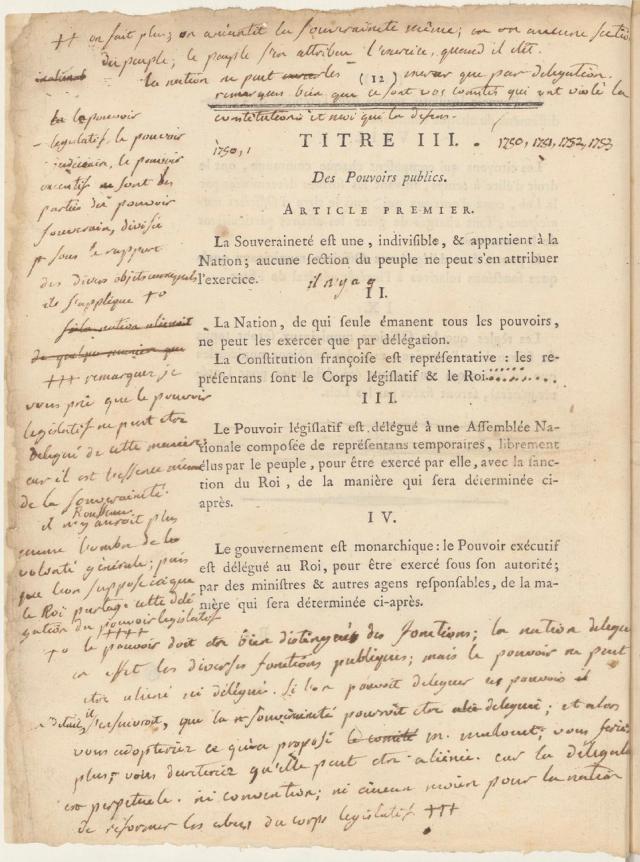 ++ on fait plus; on anéantit la souveraineté même; car on aucune section
du peuple; le peuple s'en attribue l'exercice, quand il dit.
la nation ne peut les exercer que par délégation.
(12)
remarquez bien que ce sont vos comités qui ont violé la
constitution et moi qui la défens.
le pouvoir
législatif, le pouvoir
judiciaire, le pouvoir
exécutif ne sont des
parties du pouvoir
souverain, divisé
sous le rapport
des divers objets auxquels
ils s'applique +o
si la nation aliénoit
de quelque manière que
+++ remarquez je
vous prie que le pouvoir
législatif ne peut être
délégué de cette manière;
car il est l'essence même
de la souveraineté.
Rousseau.
il n'y auroit plus
même l'ombre de la
volonté générale; puis
que l'on suppose ici que
le Roi partage cette délé
gation du pouvoir législatif
++++
TITRE III.
1790, 1
1790, 1791, 1792, 1793
Des Pouvoirs publics.
ARTICLE PREMIER.
La Souveraineté est une, indivisible, & appartient à la
Nation; aucune section du peuple ne peut s'en attribuer
l'exercice.
il n'y a q
II.
La Nation, de qui seule émanent tous les pouvoirs,
ne peut les exercer que par délégation.
La Constitution françoise est représentative : les re-
présentans sont le Corps législatif & le Roi.
III.
Le Pouvoir législatif est délégué à une Assemblée Na-
tionale composée de représentans temporaires, librement
élus par le peuple, pour être exercé par elle, avec la sanc-
tion du Roi, de la manière qui sera déterminée ci-
après.
IV.
Le gouvernement est monarchique : le Pouvoir exécutif
est délégué au Roi, pour être exercé sous son autorité;
par des ministres & autres agens responsables, de la ma-
nière qui sera déterminée ci-après.
+o le pouvoir doit être bien distingué des fonctions; la nation délègue
en effet les diverses fonctions publiques; mais le pouvoir ne peut
être aliéné ni délégué. Si l'on pouvoit déléguer ces pouvoirs
en détail, il s'ensuivroit, que la souveraineté pourroit être déléguée; et alors
vous adopteriez ce qu'a proposé le comité m. malouet; vous feriez
plus; vous décréteriez qu'elle peut être aliénée. car la délégation
est perpétuelle. ni convention; ni aucun moien pour la nation
de réformer les abus du corps législatif +++